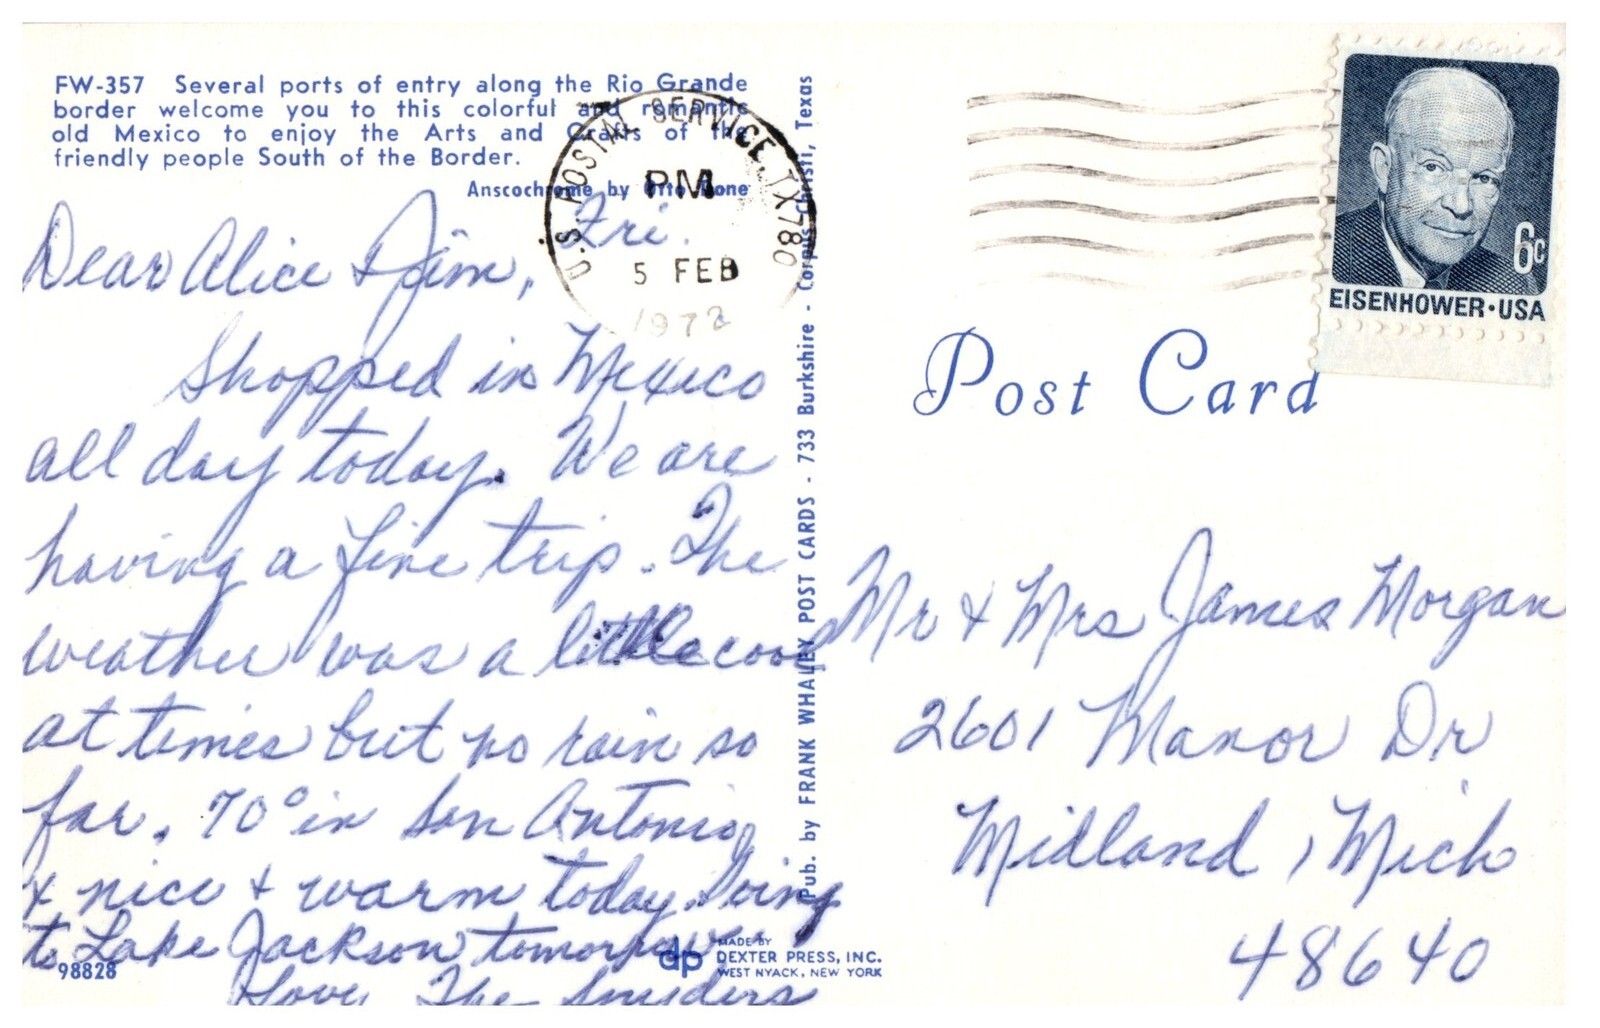 FW-357 Several ports of entry along the Rio Grande
border welcome you to this colorful and romantic
old Mexico to enjoy the Arts and Crafts of the
friendly people South of the Border.
Anscochrome by Otto Done
U.S. POSTAL SERVICE, TX 780
PM
5 FEB
1972
Fri.
Dear Alice & Jim,
Shopped in Mexico
all day today. We are
having a fine trip. The
weather was a little cool
at times but no rain so
far. 70° in San Antonio
& nice & warm today. Going
to Lake Jackson tomorrow.
Love, The Snyders
98828
Pub. by FRANK WHALEY POST CARDS - 733 Burkshire - Corpus Christi, Texas
dp
MADE BY
DEXTER PRESS, INC.
WEST NYACK, NEW YORK
6c
EISENHOWER·USA
Post Card
Mr & Mrs James Morgan
2601 Manor Dr
Midland, Mich
48640